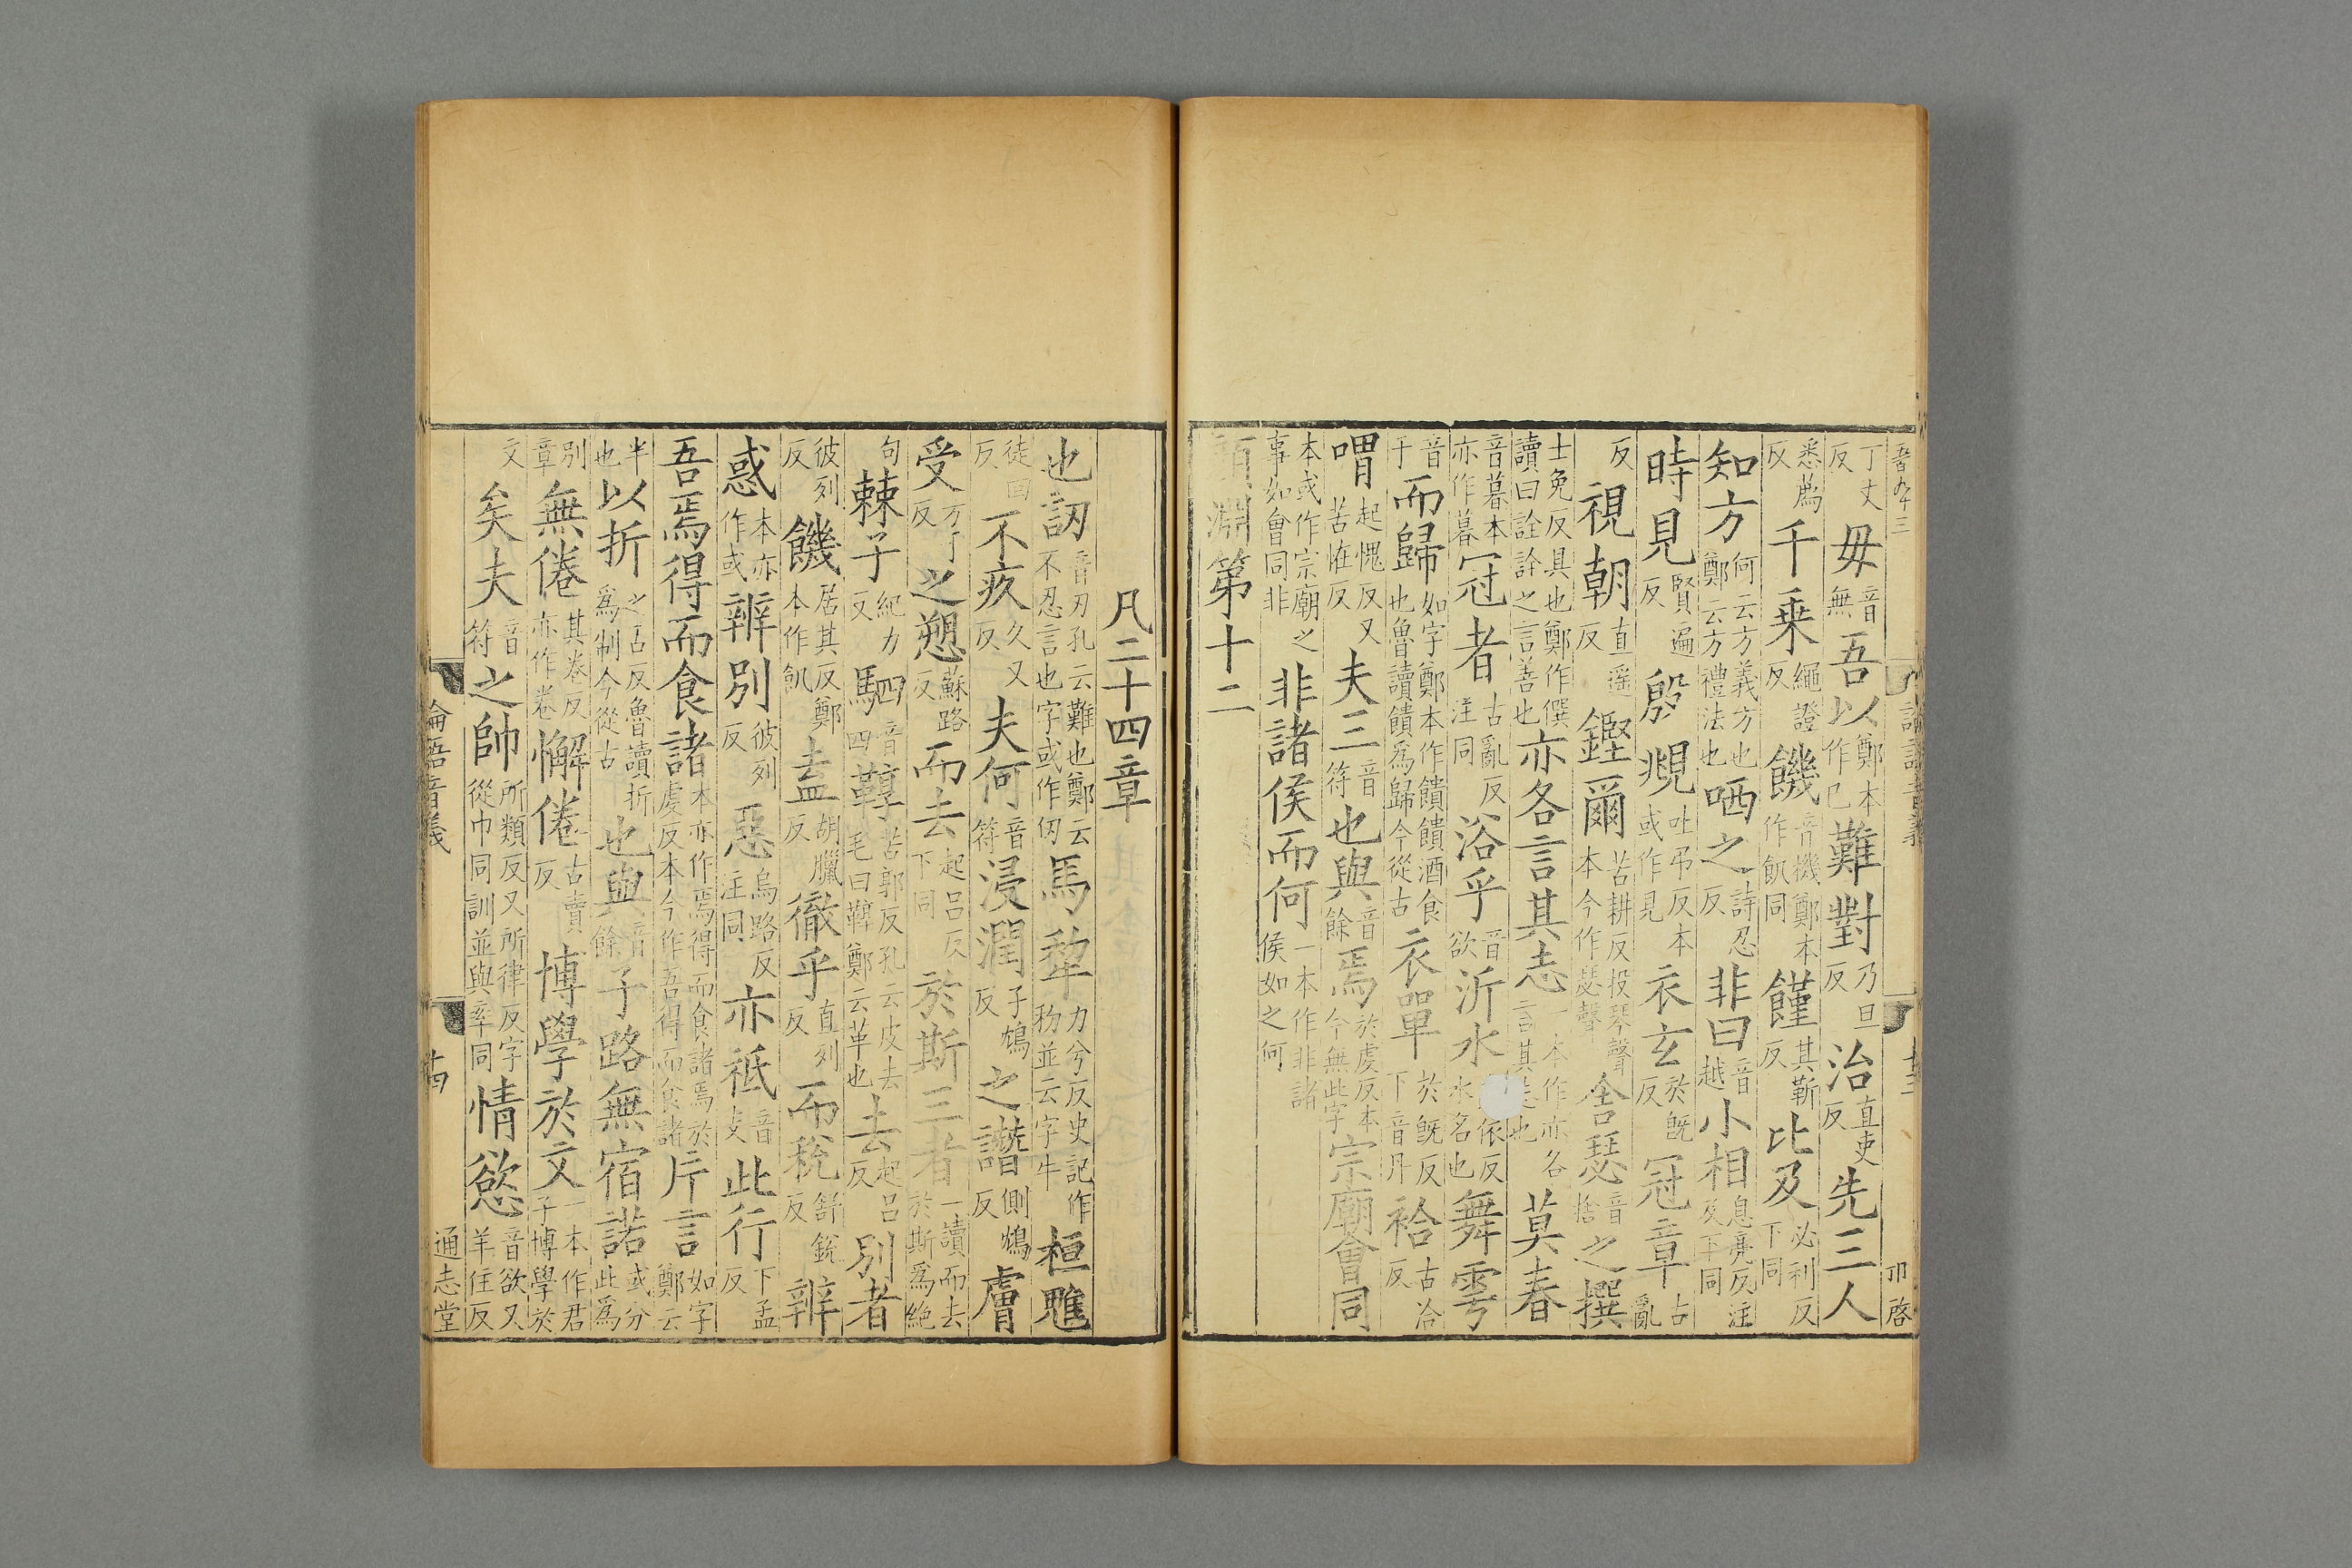 丁丈反毋音無吾以鄭本作已難對乃旦反治直吏反先三人
悉薦反千乗繩證反饑音機鄭本作飢同饉其靳反比及必利反下同
知方何云方義方也鄭云方禮法也哂之詩忍反非曰音越小相息亮反注及下同
時見賢遍反殷覜吐弔反本或作見衣玄於既反冠章古亂
反視朝直遥反鏗爾苦耕反投琴聲本今作瑟聲舍瑟音捨之撰
士免反具也鄭作僎讀曰詮詮之言善也亦各言其志一本作亦各言其志也莫春
音暮本亦作暮冠者古亂反注同浴乎音欲沂水依反水名也舞雩
音于而歸如字鄭本作饋饋酒食也魯讀饋爲歸今從古衣單於既反下音丹袷古洽反
喟起愧反又苦怪反夫三音符也與音餘焉於虔反本今無此字宗廟會同
本或作宗廟之事如會同非非諸侯而何一本作非諸侯如之何
顏淵第十二
凡二十四章
也訒音刃孔云難也鄭云不忍言也字或作仞馬犂力兮反史記作利並云字牛桓魋
徒回反不疚久又反夫何音符浸潤子鴆反之譖側鴆反膚
受方于反之愬蘇路反而去起呂反下同於斯三者一讀而去於斯爲絶
句棘子紀力反駟音四四鞟苦郭反孔云皮去毛曰鞟鄭云革也去起呂反別者
彼列反饑居其反鄭本作飢盍胡臘反徹乎直列反而稅舒銳反辨
惑本亦作或辨別彼列反惡烏路反注同亦祗音支此行下孟反
吾焉得而食諸本亦作焉得而食諸焉於虔反本今作吾得而食諸片言如字鄭云
半也以折之舌反魯讀折爲制今從古也與音餘子路無宿諾或分此爲
別章無倦其卷反亦作卷懈倦古賣反博學於文一本作君子博學於
文矣夫音符之帥所類反又所律反字從巾同訓並與率同情慾音欲又羊住反
論語音義
十四
通志堂